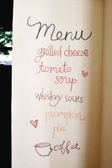 Menu
grilled cheese
tomato
soup
whiskey sours
pumpkin
pie
coffee